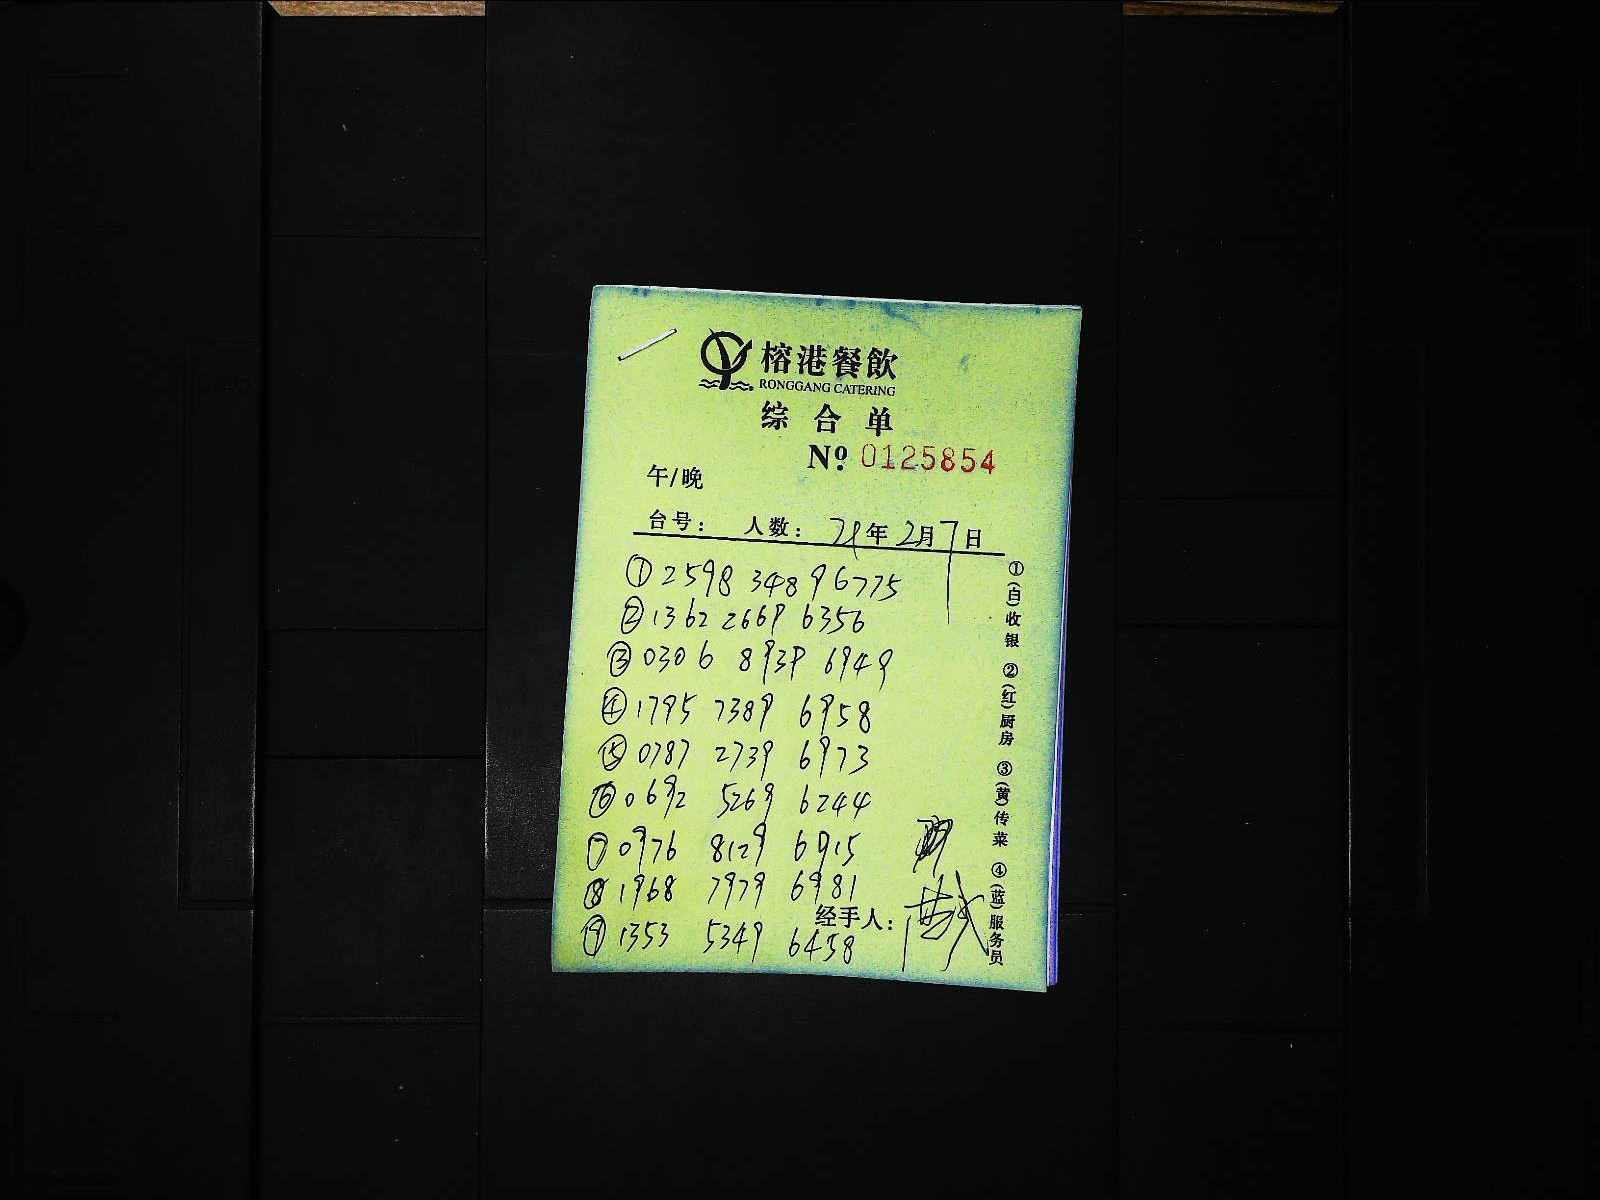 榕港餐飲
RONGGANG CATERING
综合单
Nº 0125854
午/晚
台号： 人数： 21年2月7日
①2598 3489 6775
②1362 2669 6356
③0306 8939 6949
④1795 7389 6958
⑤0787 2739 6973
⑥0692 5269 6244
⑦0976 8129 6915
⑧1968 7979 6981
经手人：
⑨1353 5349 6458
①(白)收银 ②(红)厨房 ③(黄)传菜 ④(蓝)服务员